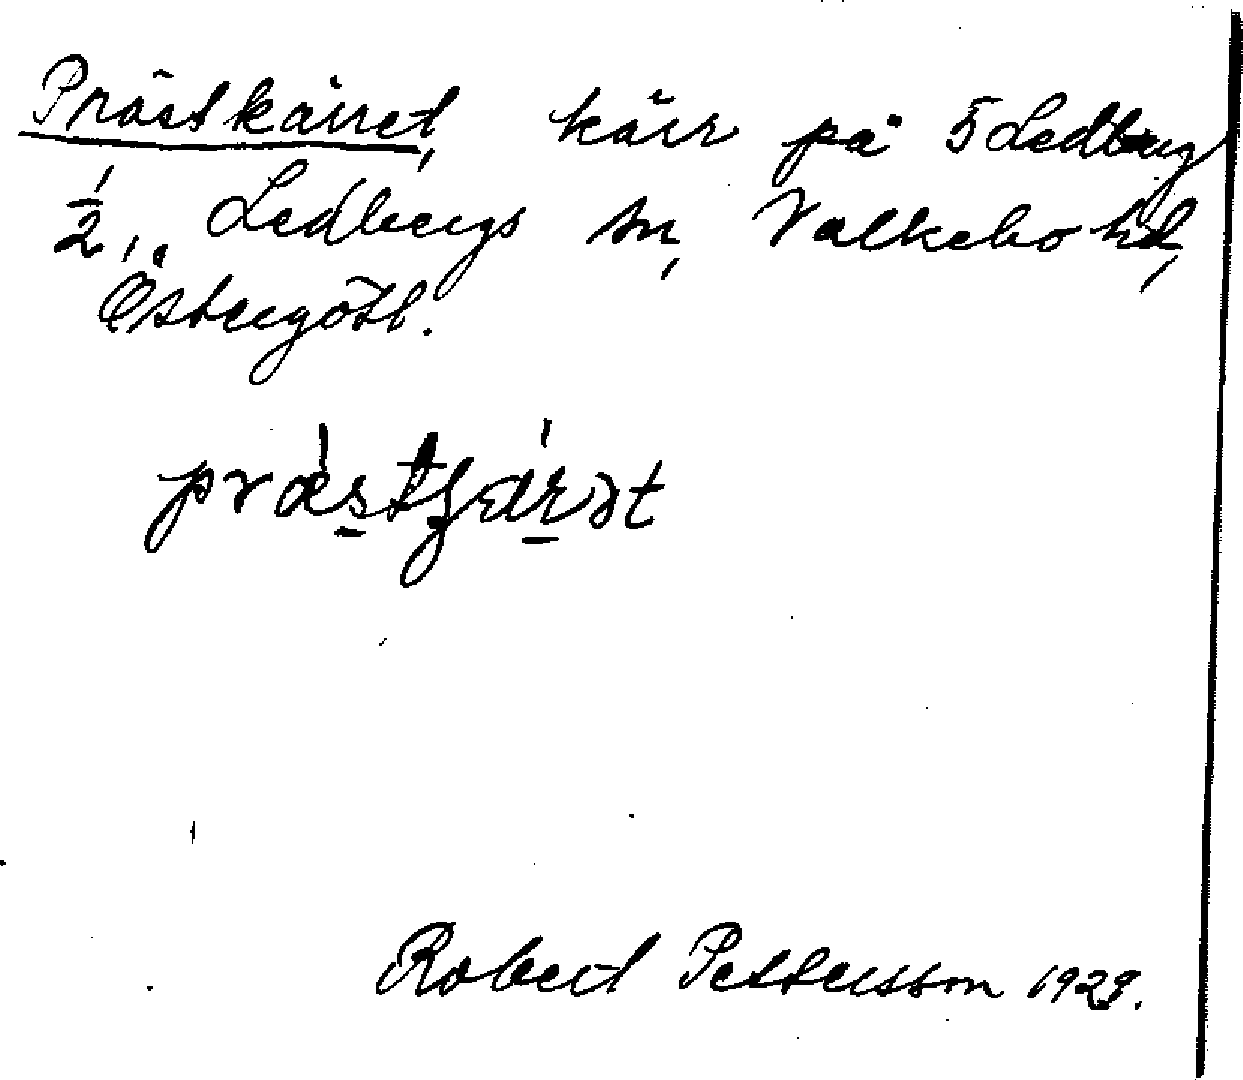 Prästkärret, kärr på 5 Ledberg
1/2, Ledbergs sn, Valkebo hd,
Östergötl.
Robert Pettersson 1929.